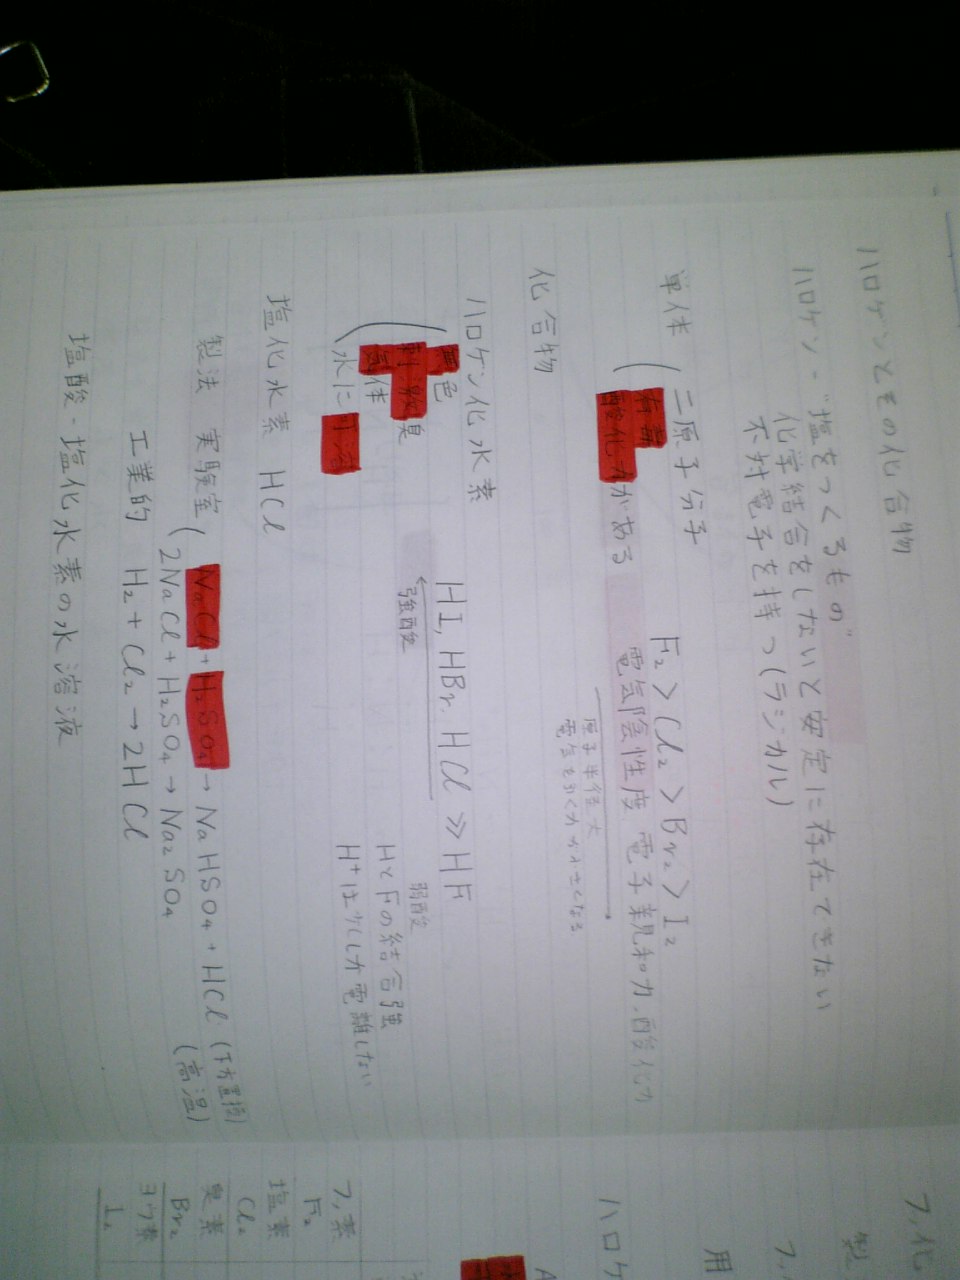 ハロゲンとその化合物
ハロゲン - "塩をつくるもの"
化学結合をしないと安定に存在できない
不対電子を持つ(ラジカル)
単体 ( 二原子分子
有毒
酸化力がある
F₂ > Cl₂ > Br₂ > I₂
電気陰性度 電子親和力、酸化力
原子半径大
電子を引く力が小さくなる
化合物
ハロゲン化水素
無色
刺激臭
気体
水に可溶
HI, HBr, HCl ≫ HF
強酸
弱酸
HとFの結合強
H⁺は少ししか電離しない
塩化水素 HCl
製法 実験室 ( NaCl + H₂SO₄ → NaHSO₄ + HCl (下方置換)
2NaCl + H₂SO₄ → Na₂SO₄ (高温)
工業的 H₂ + Cl₂ → 2HCl
塩酸 - 塩化水素の水溶液
フッ化
製
フッ
用
ハロゲ
フッ素
F₂
塩素
Cl₂
臭素
Br₂
ヨウ素
I₂